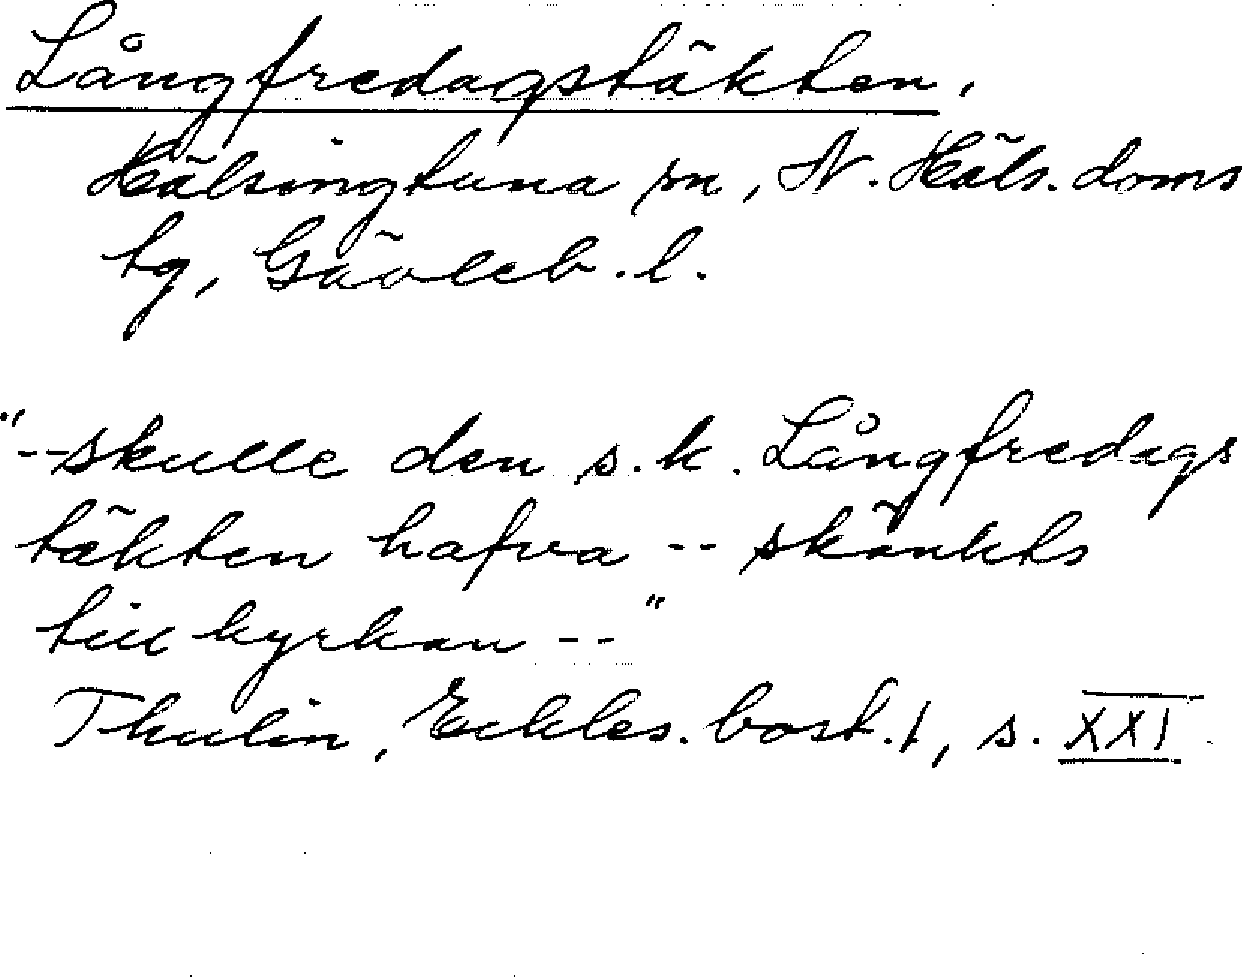 Långfredagstäkten.
Hälsingtuna sn, N. Häls. doms
tg, Gävleb. l.
"--skulle den s.k. Långfredags
täkten hafva -- skänkts
till kyrkan --"
Thulin, Eckles. bost. 1, s. XXI.